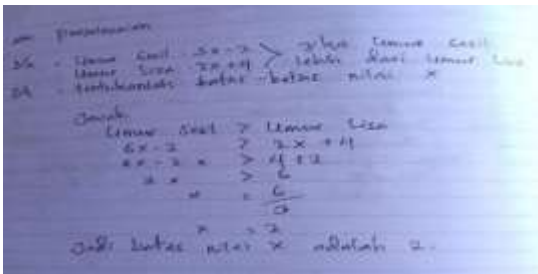 Penyelesaian
Dik - Umur Cecil 5x-2 > Jika Umur Cecil
Umur Lisa 2x+4 lebih dari Umur Lisa
Dit - tentukanlah batas-batas nilai x
Jawab:
Umur Cecil > Umur Lisa
5x-2 > 2x+4
> 4+2
> 6
6
x = 2
Jadi batas nilai x adalah 2.